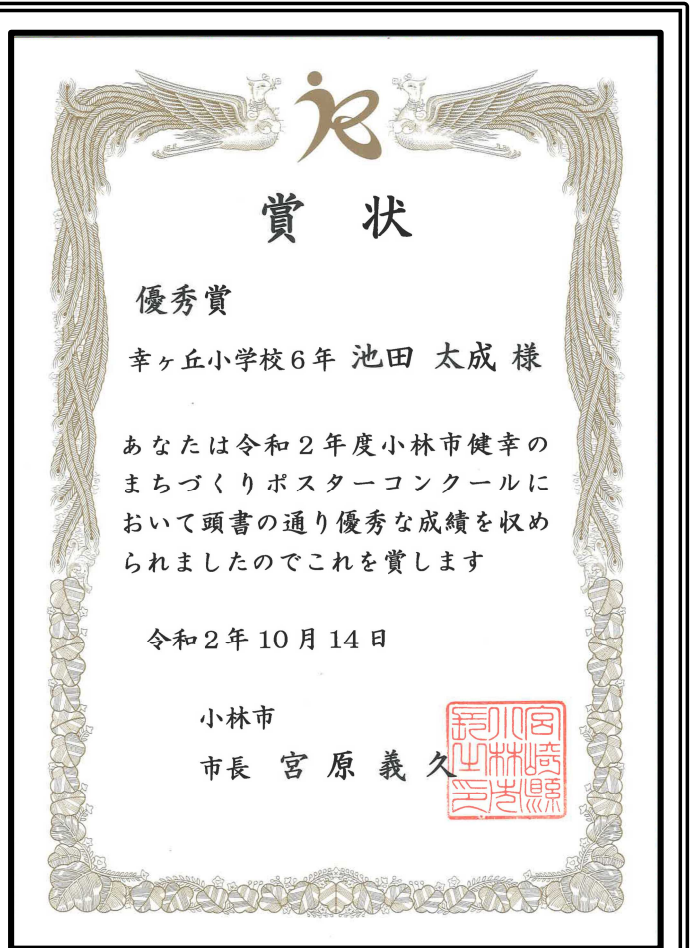 賞 状
優秀賞
幸ヶ丘小学校6年 池田 太成 様
あなたは令和2年度小林市健幸の
まちづくりポスターコンクールに
おいて頭書の通り優秀な成績を収め
られましたのでこれを賞します
令和2年10月14日
小林市
市長 宮原義久